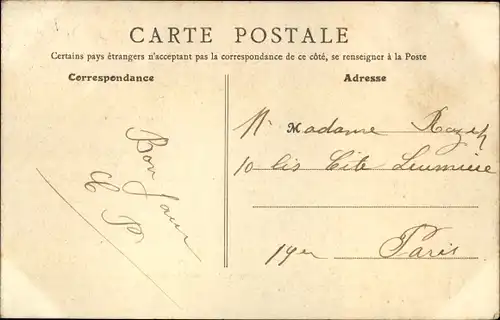 CARTE POSTALE
Certains pays étrangers n'acceptant pas la correspondance de ce côté, se renseigner à la Poste
Correspondance
Bon Jour
P
Adresse
Madame
10 bis Cité Lumière
Paris